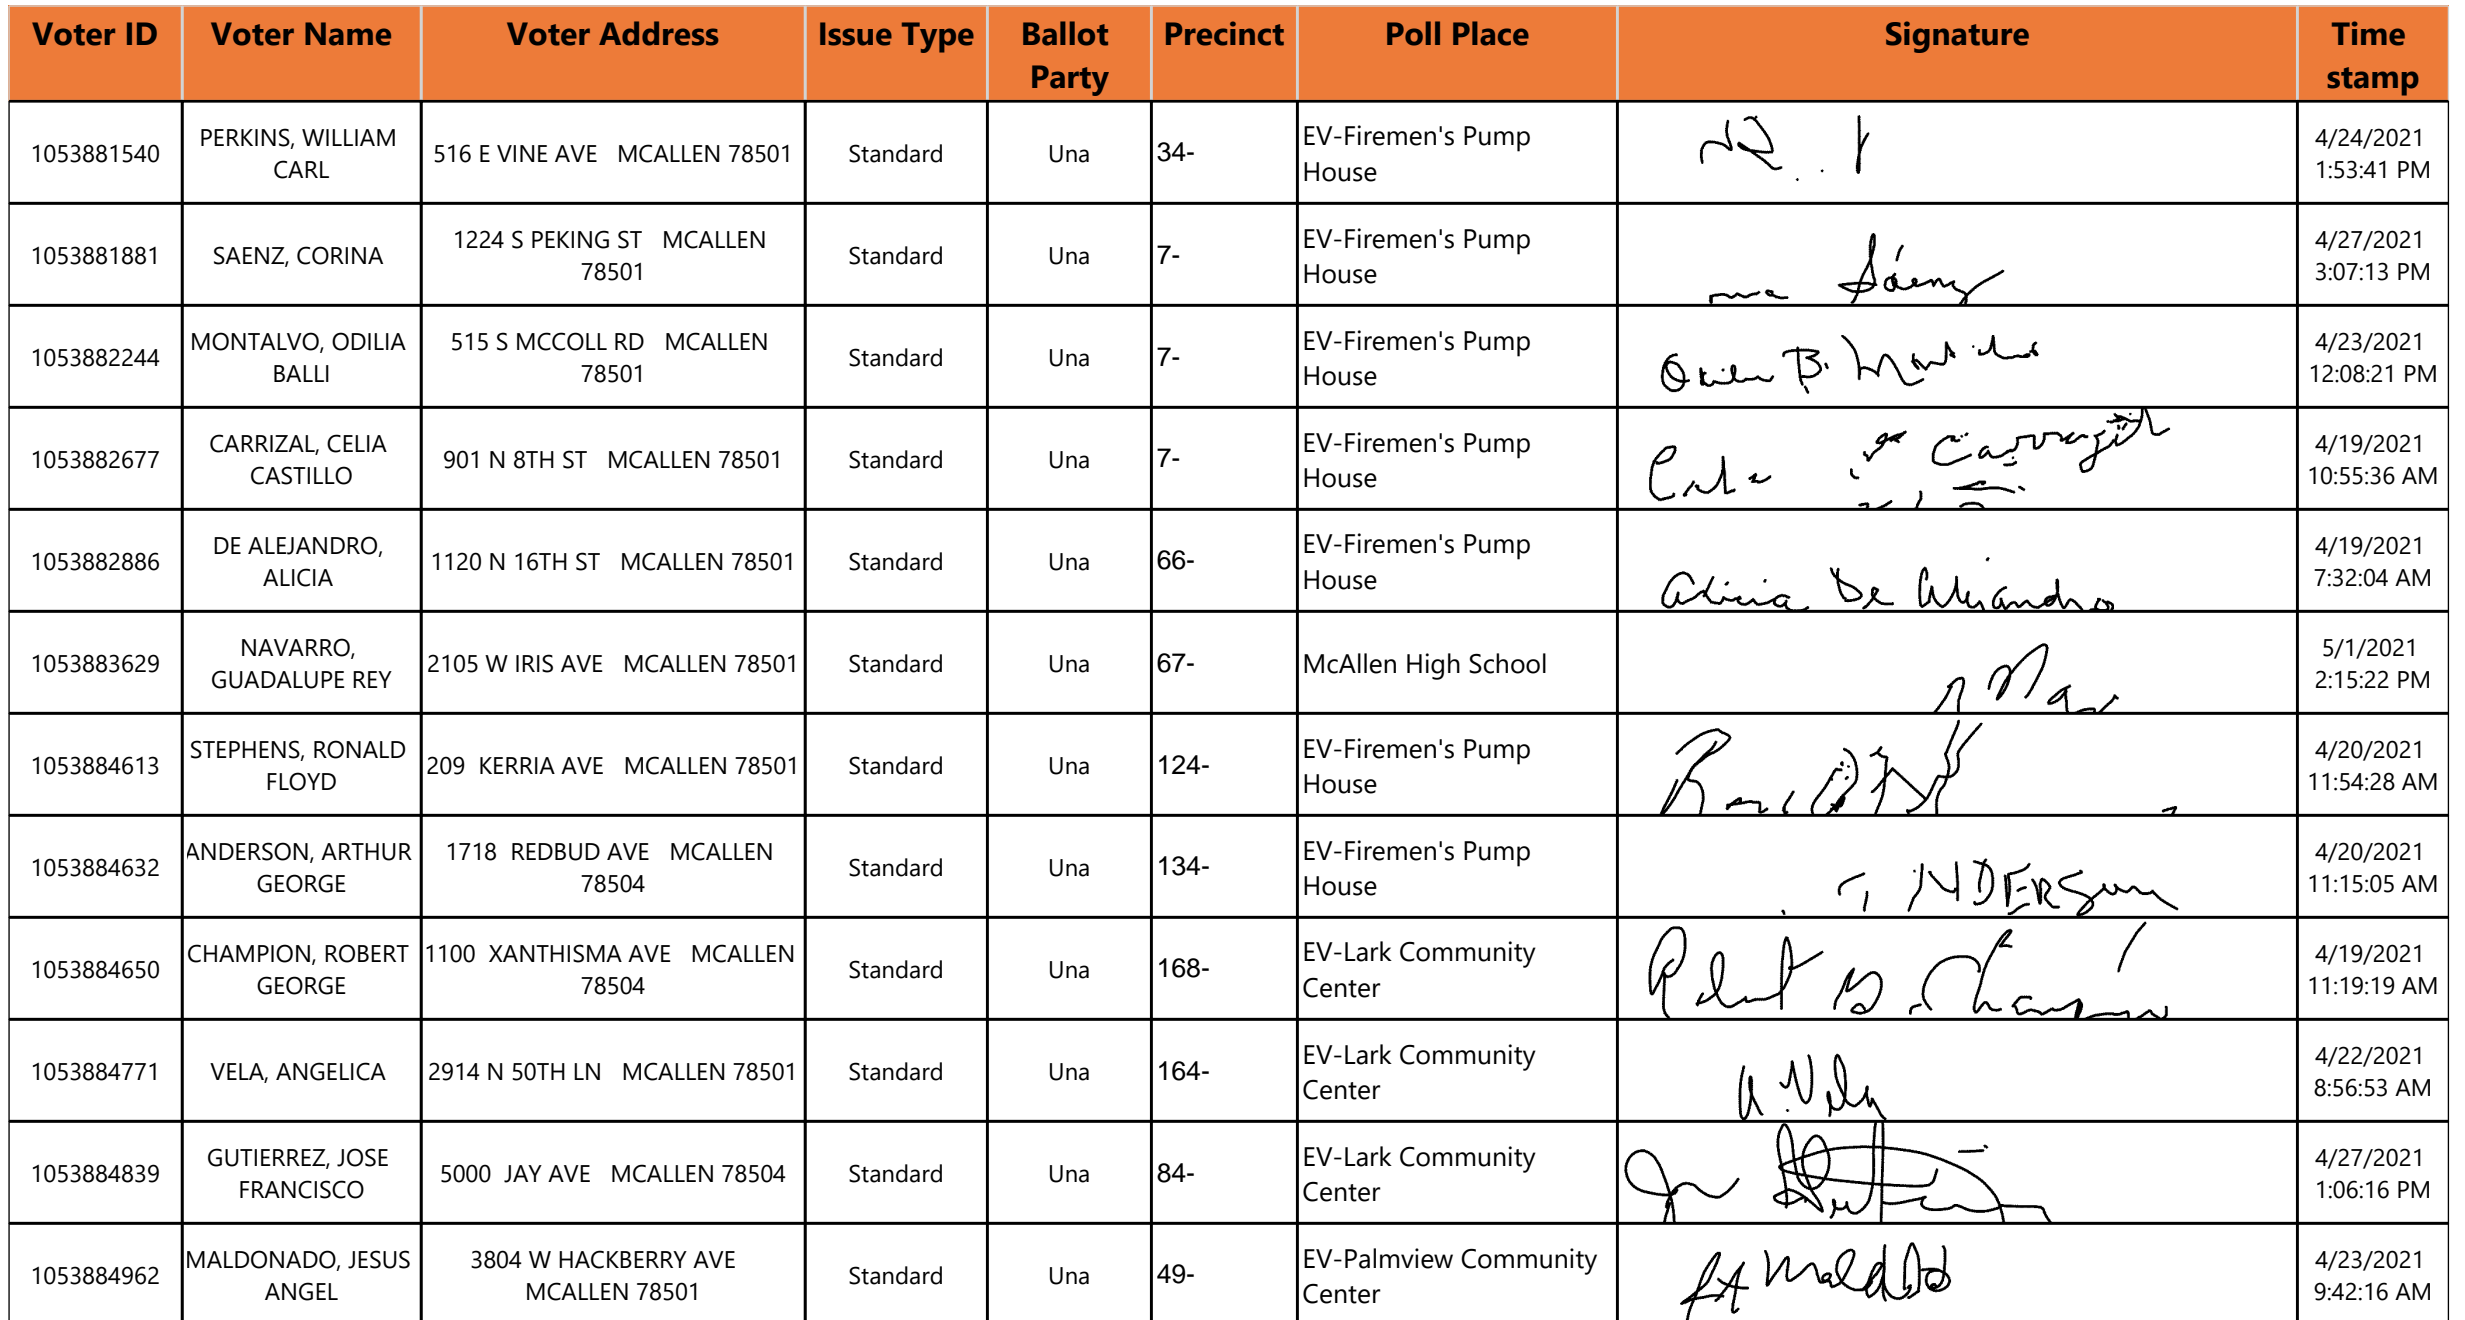 Voter ID Voter Name Voter Address Issue Type Ballot Party Precinct Poll Place Signature Time stamp
1053881540 PERKINS, WILLIAM CARL 516 E VINE AVE MCALLEN 78501 Standard Una 34- EV-Firemen's Pump House 4/24/2021 1:53:41 PM
1053881881 SAENZ, CORINA 1224 S PEKING ST MCALLEN 78501 Standard Una 7- EV-Firemen's Pump House Sáenz 4/27/2021 3:07:13 PM
1053882244 MONTALVO, ODILIA BALLI 515 S MCCOLL RD MCALLEN 78501 Standard Una 7- EV-Firemen's Pump House B. 4/23/2021 12:08:21 PM
1053882677 CARRIZAL, CELIA CASTILLO 901 N 8TH ST MCALLEN 78501 Standard Una 7- EV-Firemen's Pump House 4/19/2021 10:55:36 AM
1053882886 DE ALEJANDRO, ALICIA 1120 N 16TH ST MCALLEN 78501 Standard Una 66- EV-Firemen's Pump House Alicia De Alejandro 4/19/2021 7:32:04 AM
1053883629 NAVARRO, GUADALUPE REY 2105 W IRIS AVE MCALLEN 78501 Standard Una 67- McAllen High School 5/1/2021 2:15:22 PM
1053884613 STEPHENS, RONALD FLOYD 209 KERRIA AVE MCALLEN 78501 Standard Una 124- EV-Firemen's Pump House 4/20/2021 11:54:28 AM
1053884632 ANDERSON, ARTHUR GEORGE 1718 REDBUD AVE MCALLEN 78504 Standard Una 134- EV-Firemen's Pump House 4/20/2021 11:15:05 AM
1053884650 CHAMPION, ROBERT GEORGE 1100 XANTHISMA AVE MCALLEN 78504 Standard Una 168- EV-Lark Community Center 4/19/2021 11:19:19 AM
1053884771 VELA, ANGELICA 2914 N 50TH LN MCALLEN 78501 Standard Una 164- EV-Lark Community Center A. Vela 4/22/2021 8:56:53 AM
1053884839 GUTIERREZ, JOSE FRANCISCO 5000 JAY AVE MCALLEN 78504 Standard Una 84- EV-Lark Community Center 4/27/2021 1:06:16 PM
1053884962 MALDONADO, JESUS ANGEL 3804 W HACKBERRY AVE MCALLEN 78501 Standard Una 49- EV-Palmview Community Center 4/23/2021 9:42:16 AM